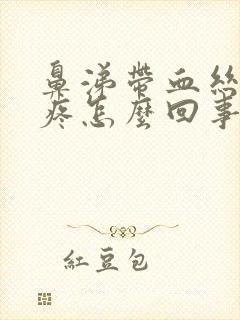 鼻涕帶血絲
疼怎麼回事
紅豆包